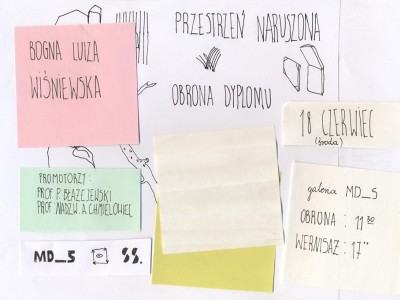 BOGNA LUIZA
WIŚNIEWSKA
PRZESTRZEŃ NARUSZONA
OBRONA DYPLOMU
18 CZERWIEC
(środa)
PROMOTORZY:
PROF. P. BŁAŻEJEWSKI
PROF. NADZW. A. CHMIELOWIEC
galeria MD_S
OBRONA : 11 30
WERNISAŻ : 17 00
MD_S SS.